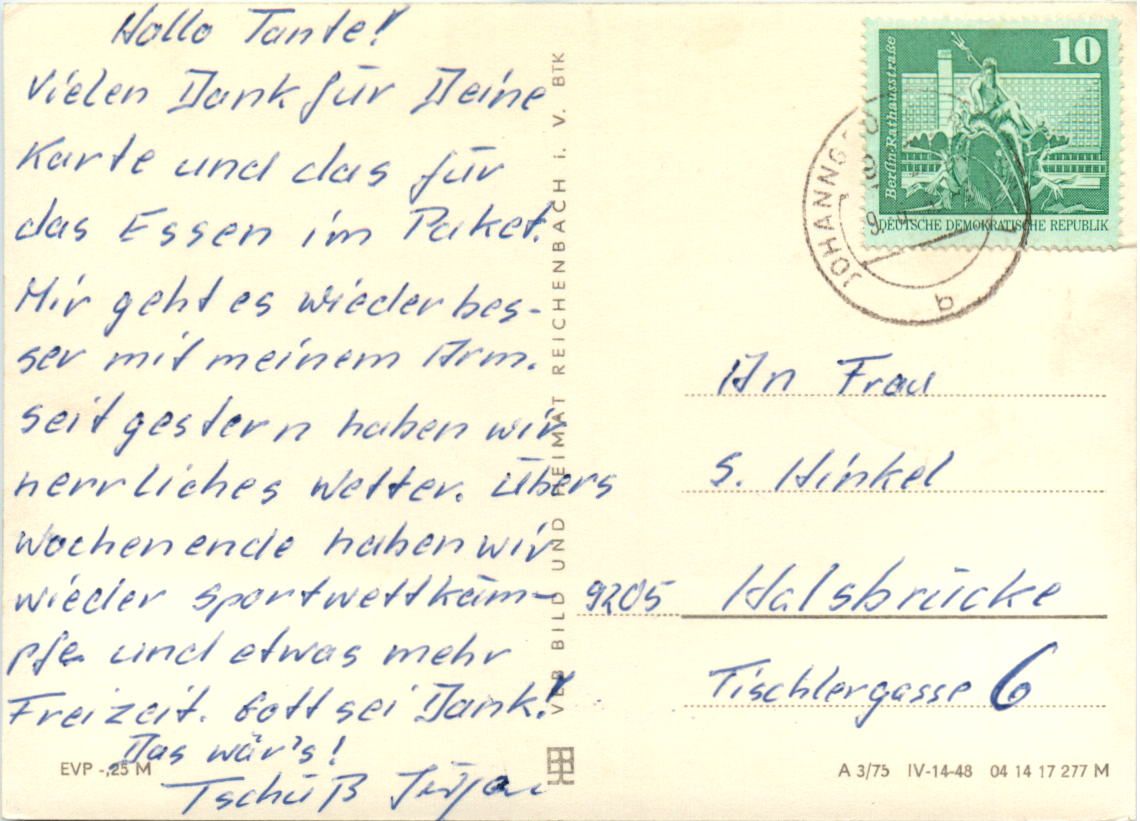 Hallo Tante!
Vielen Dank für Deine
Karte und das für
das Essen im Paket.
Mir geht es wieder bes-
ser mit meinem Arm.
seit gestern haben wir
herrliches Wetter. Übers
Wochenende haben wir
wieder Sportwettkäm-
pfe und etwas mehr
Freizeit. Gott sei Dank!
Das wär's!
Tschüß
EVP -,25 M
VEB BILD UND HEIMAT REICHENBACH i. V. BTK
10
Berlin-Rathausstraße
DEUTSCHE DEMOKRATISCHE REPUBLIK
b
An Frau
S. Hinkel
9205 Halsbrücke
Tischlergasse 6
A 3/75 IV-14-48 04 14 17 277 M